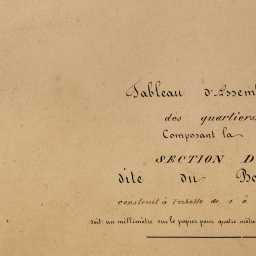 Tableau d'Assem
des quartiers
Composant la
SECTION D
dite du Bo
construit à l'échelle de 1 à
soit un millimètre sur le papier pour quatre mètre